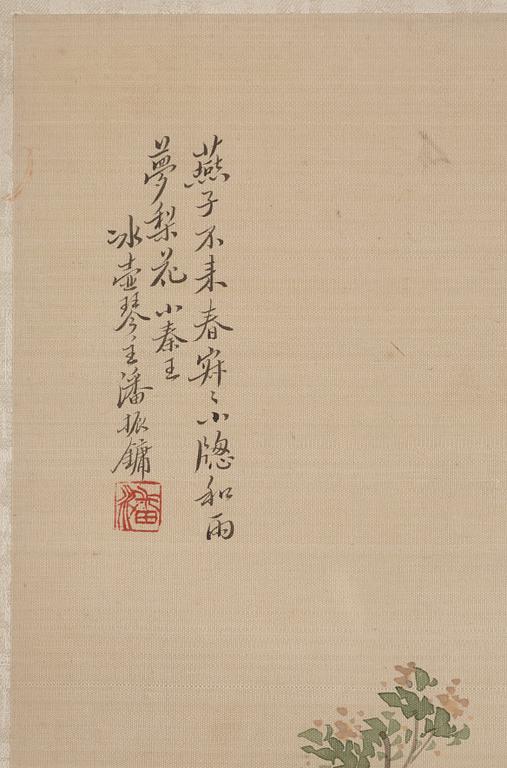 燕子不来春寂〻小牕和雨
夢梨花小秦王
冰壺琴主潘振鏞
潘